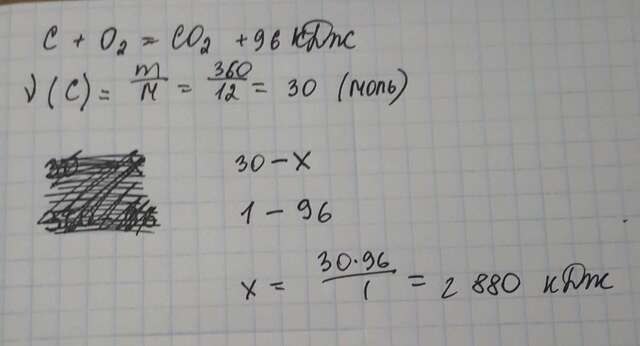 C + O₂ = CO₂ + 96 кДж
ν (C) = m/M = 360/12 = 30 (моль)
30 – x
1 – 96
x = 30·96/1 = 2 880 кДж